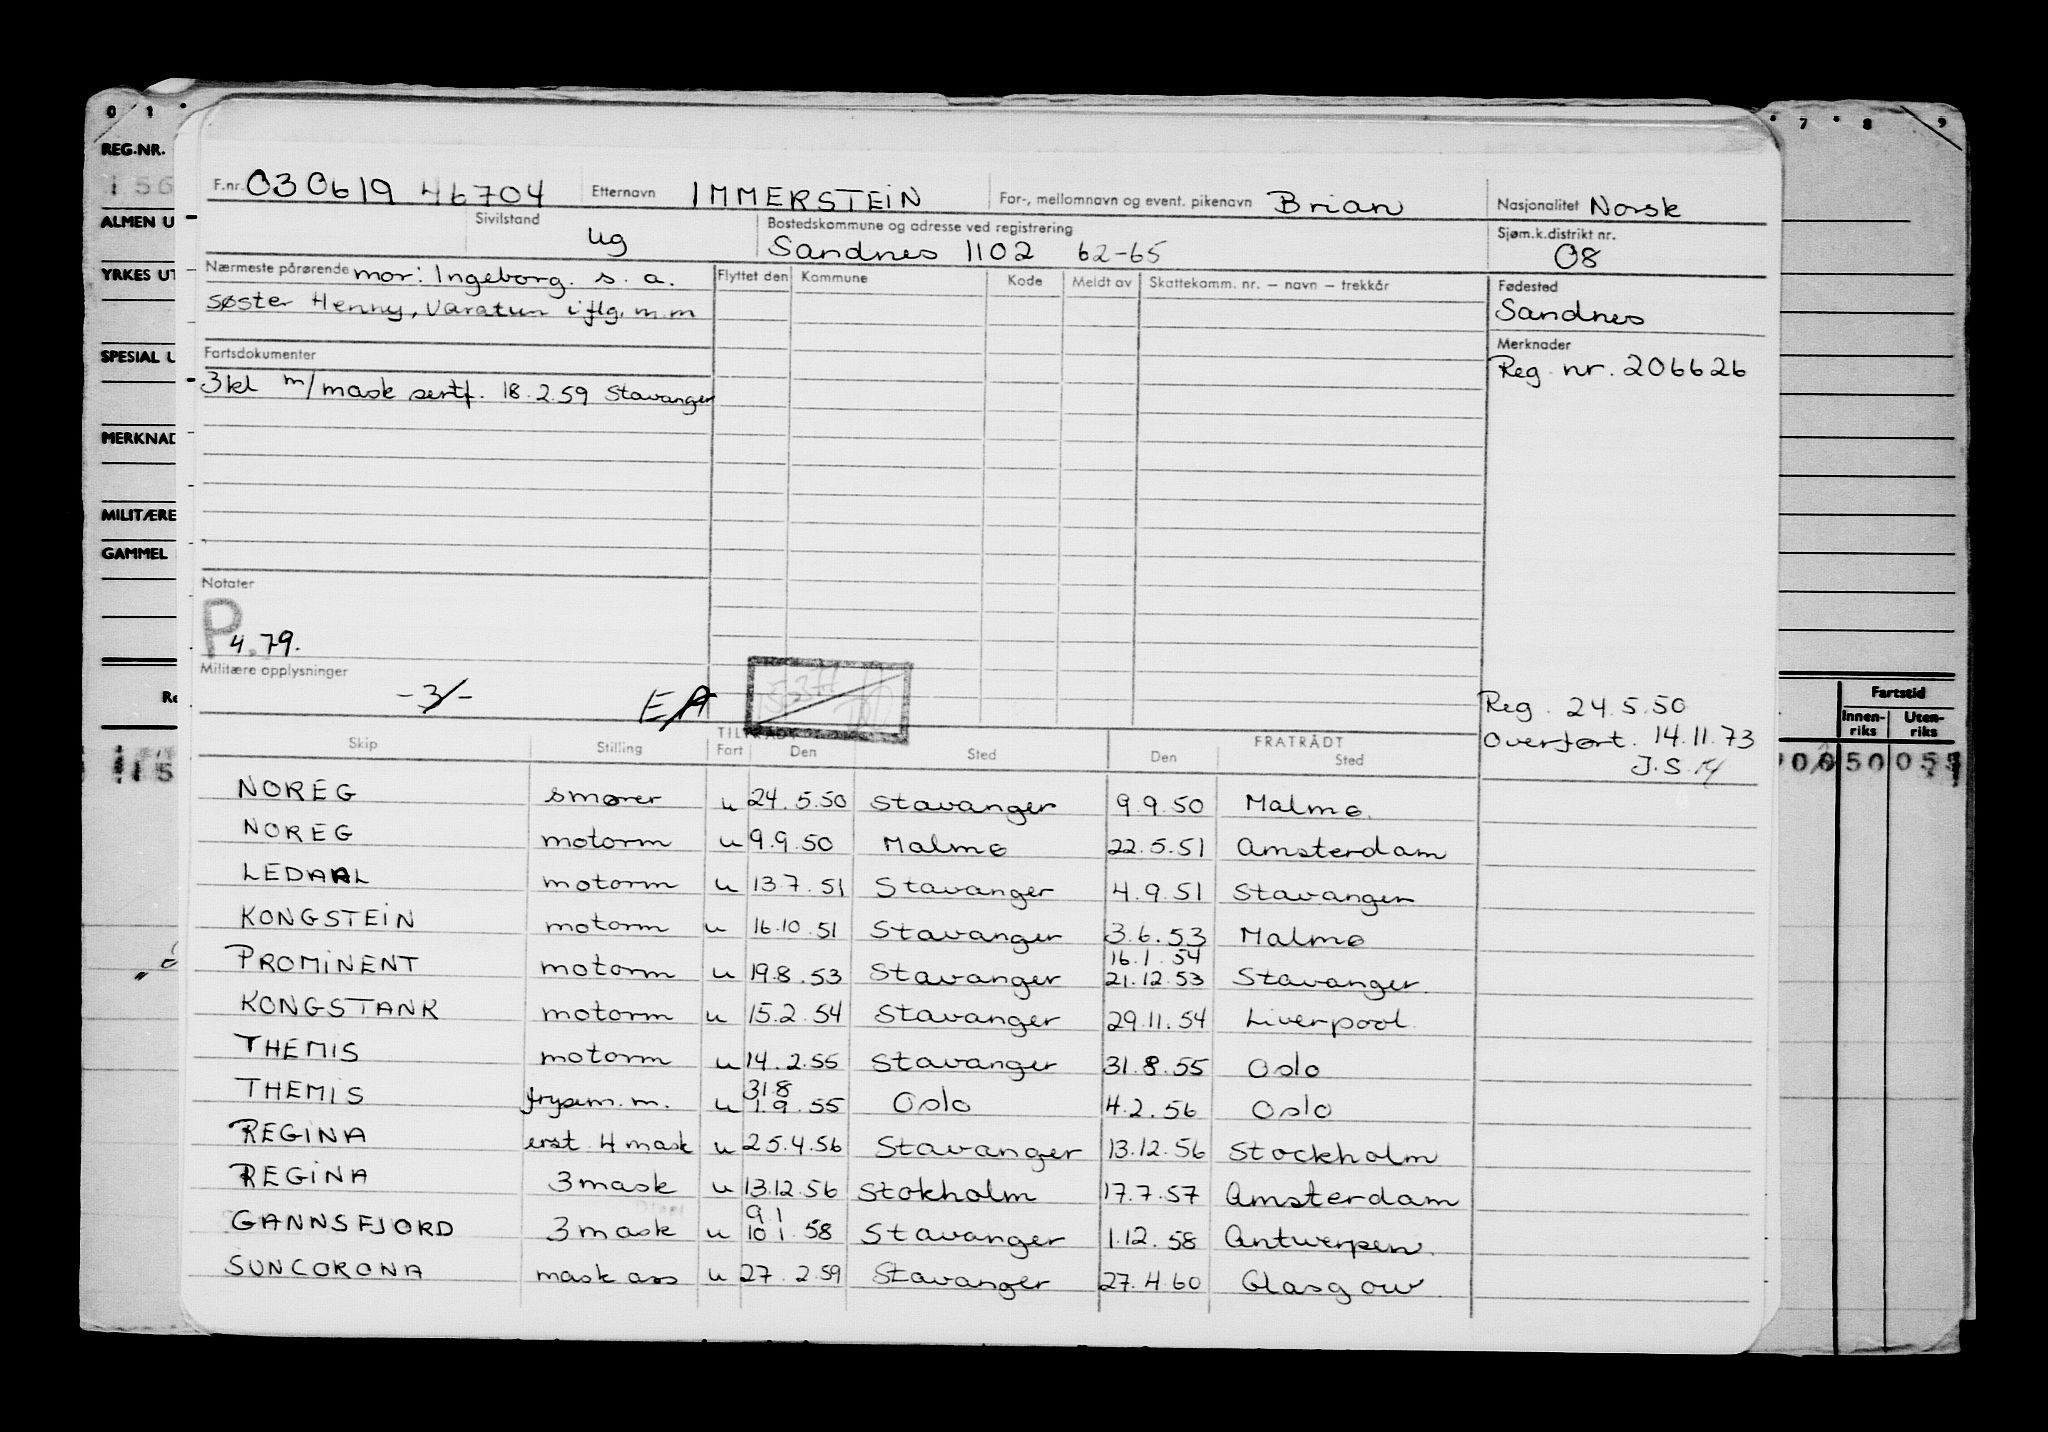 0 1 7 8 9
REG.NR.
156
ALMEN U
YRKES UT
SPESIAL U
MERKNAD
MILITÆRE
GAMMEL
F.nr. 030619 46704 Etternavn IMMERSTEIN For-, mellomnavn og event. pikenavn Brian Nasjonalitet Norsk
Sivilstand ug Bostedskommune og adresse ved registrering Sjøm.k.distrikt nr.
Sandnes 1102 62-65 08
Nærmeste pårørende mor: Ingeborg. s. a. Flyttet den Kommune Kode Meldt av Skattekomm. nr. – navn – trekkår Fødested
søster Henny, Varatun iflg. m.m Sandnes
Fartsdokumenter Merknader
3kl m/mask sertf. 18.2.59 Stavanger Reg. nr. 206626
Notater
P 4.79.
Militære opplysninger
-3/- E/A
Reg. 24.5.50
Overført. 14.11.73
J.S.
Fartstid
Innen-riks Uten-riks
Skip Stilling TILTRÅDT Fart Den Sted FRATRÅDT Den Sted
NOREG smører u 24.5.50 Stavanger 9.9.50 Malmø.
NOREG motorm u 9.9.50 Malmø 22.5.51 Amsterdam
LEDAAL motorm u 13.7.51 Stavanger 4.9.51 Stavanger
KONGSTEIN motorm u 16.10.51 Stavanger 3.6.53 Malmø
16.1.54
PROMINENT motorm u 19.8.53 Stavanger 21.12.53 Stavanger.
KONGSTANK motorm u 15.2.54 Stavanger 29.11.54 Liverpool
THEMIS motorm u 14.2.55 Stavanger 31.8.55 Oslo
31.8
THEMIS frysem.m. u 1.9.55 Oslo 4.2.56 Oslo
REGINA erst. 4 mask u 25.4.56 Stavanger 13.12.56 Stockholm
REGINA 3 mask u 13.12.56 Stokholm 17.7.57 Amsterdam
9 1
GANNSFJORD 3 mask u 10 1.58 Stavanger 1.12.58 Antwerpen.
SUNCORONA mask ass u 27.2.59 Stavanger 27.4.60 Glasgow